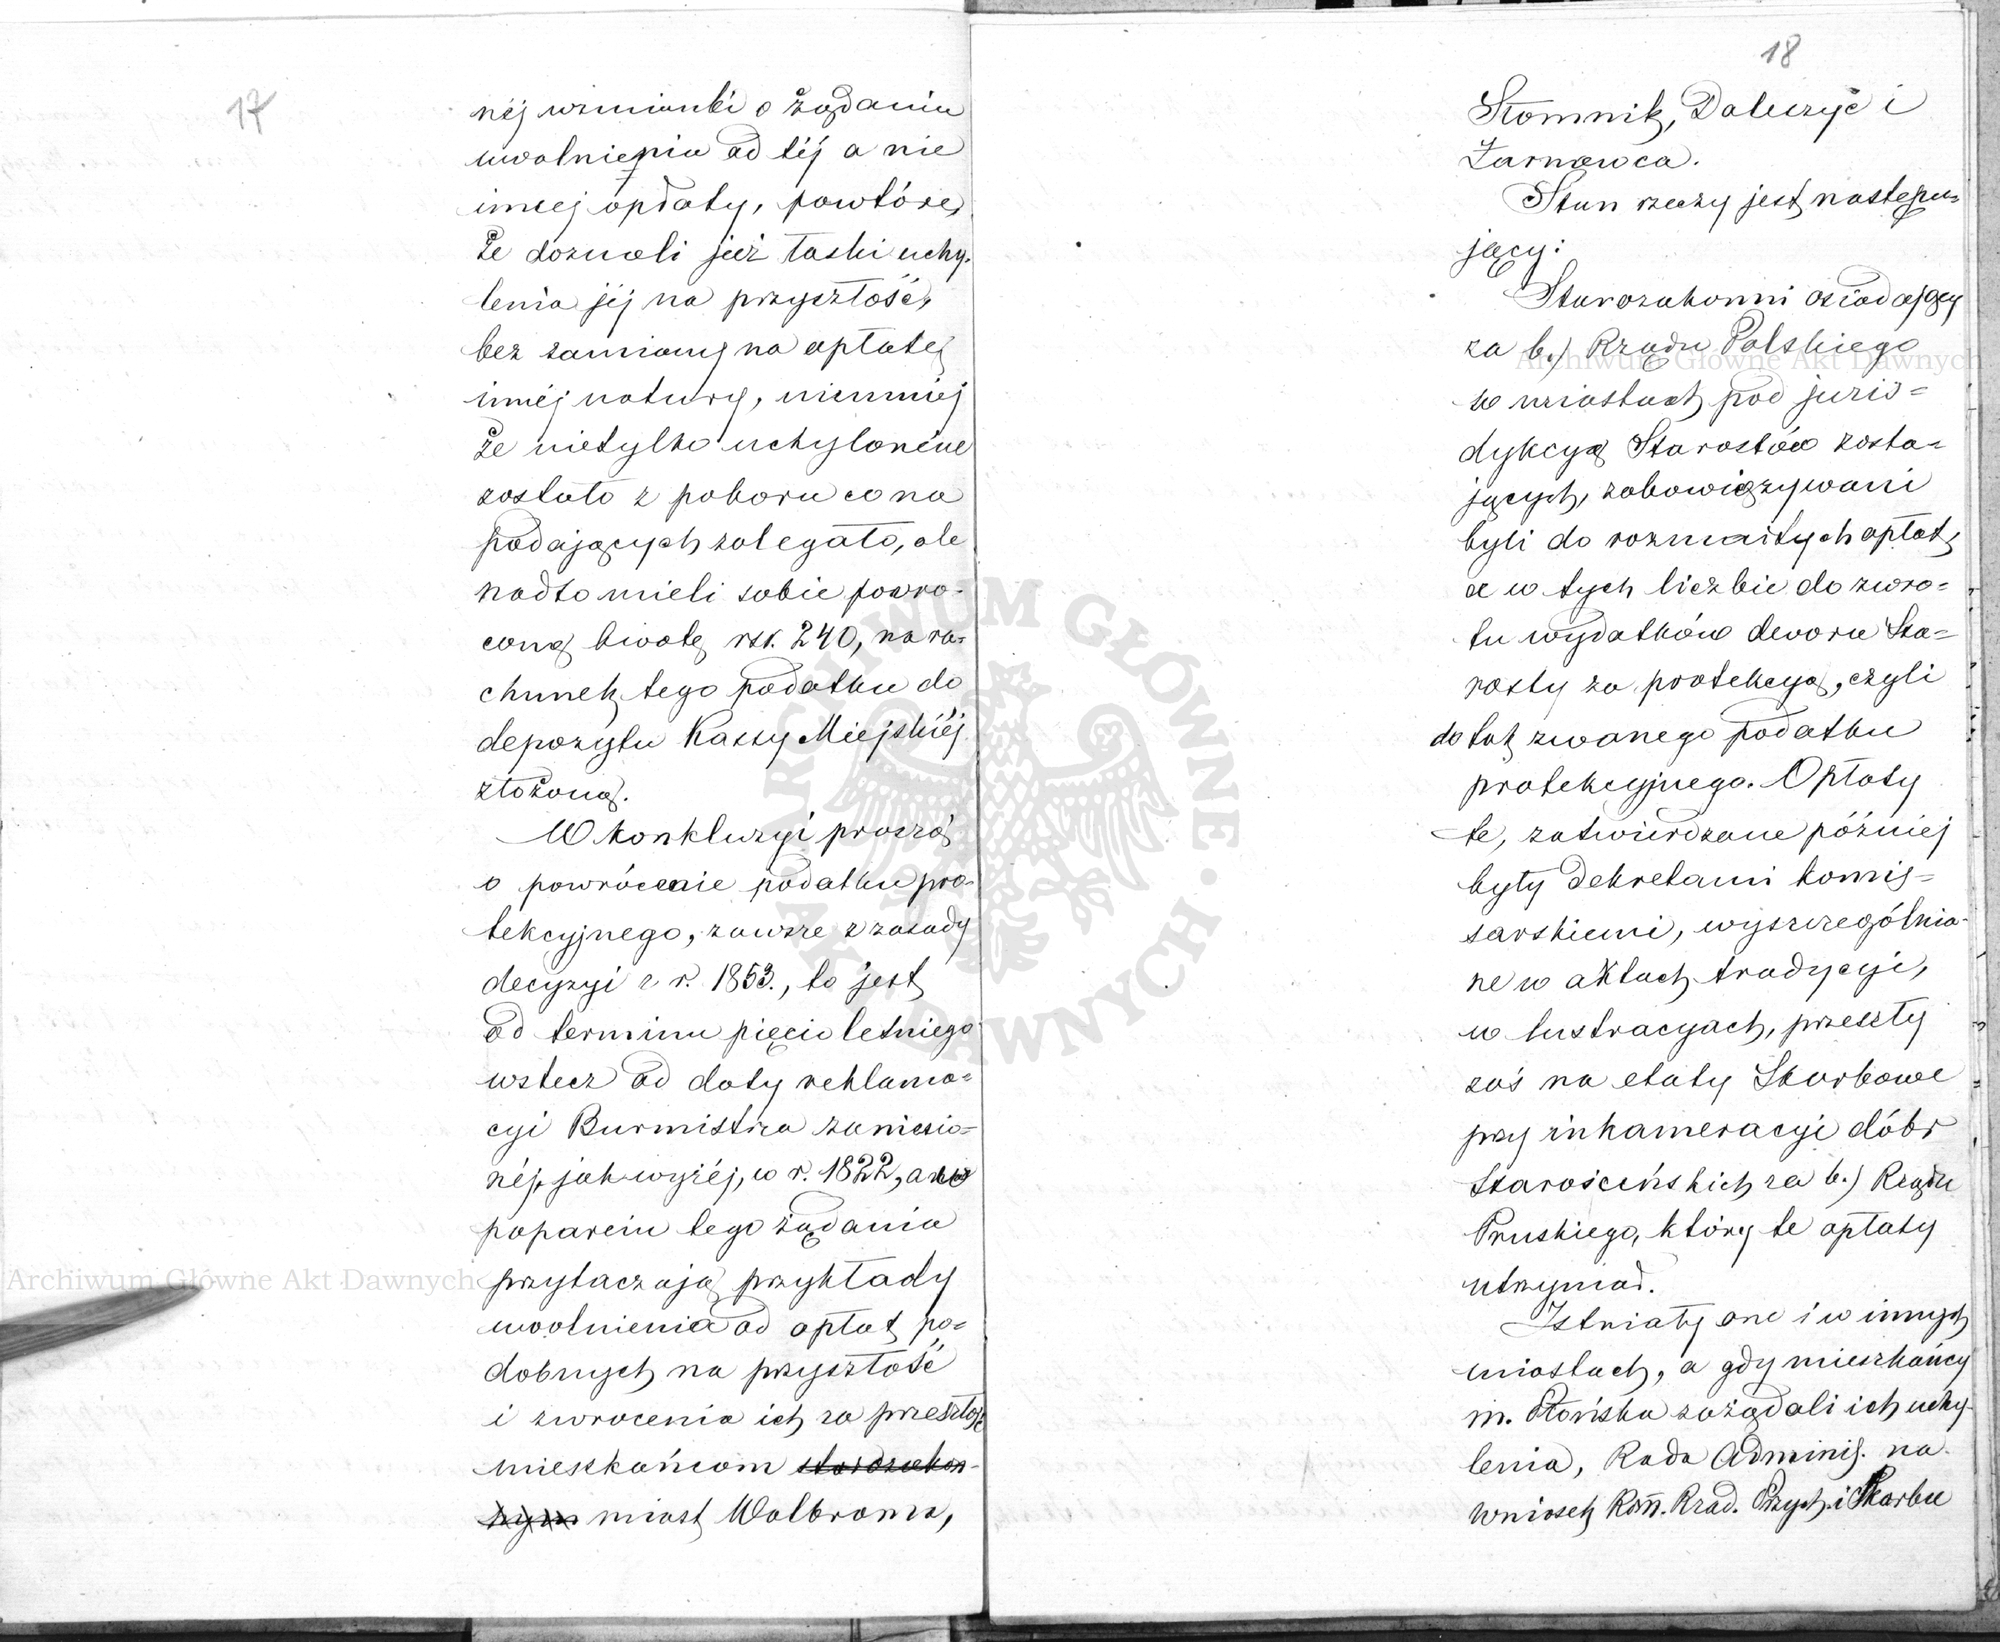 17
nej wzmianki o żądaniu
uwolnienia od téj a nie
innej opłaty, powtóre,
że doznali już łaski uchy-
lenia jéj na przyszłość,
bez zamiany na opłatę
innéj natury, niemniéj
że nietylko uchylonéne
zostało z poboru co na
podających zalegało, ale
nadto mieli sobie powró-
coną kwotę rsr. 240, na ra-
chunek tego podatku do
depozytu Kassy Miejskiéj
złożoną.
W konkluzyi proszą
o powrócenie podatku pro-
tekcyjnego, zawsze z zasady
decyzyi z r. 1853., to jest
od terminu pięcio letniego
wstecz od daty reklama-
cyi Burmistrza zaniesio-
néj, jak wyżéj, w r. 1822, a w
poparciu tego żądania
przytaczają przykłady
uwolnienia od opłat po-
dobnych na przyszłość
i zwrócenia ich za przeszłość
mieszkańcom starozakon-
nym miast Wolbroma,
18
Słomnik, Daleszyc i
Żarnowca.
Stan rzeczy jest następu-
jący:
Starozakonni osiadający
za b.) Rządu Polskiego
w miastach pod juris-
dykcyą Starostów zosta-
jących, zobowiązywani
byli do rozmaitych opłat,
a w tych liczbie do zwro-
tu wydatków dworu Sta-
rosty za protekcyą, czyli
do tak zwanego podatku
protekcyjnego. Opłaty
te, zatwierdzane później
były dekretami komis-
sarskiemi, wyszczególnio-
ne w aktach tradycyi,
w lustracyach, przeszły
zaś na etaty Skarbowe
przy inkameracyi dóbr
Starościńskich za b.) Rządu
Pruskiego, który te opłaty
utrzymał.
Istniały one i w innych
miastach, a gdy mieszkańcy
m. Płońska zażądali ich uchy-
lenia, Rada Adminis. na
wniosek Kom. Rząd. Przych. i Skarbu
Archiwum Główne Akt Dawnych
Archiwum Główne Akt Dawnych
ARCHIWUM GŁÓWNE AKT DAWNYCH